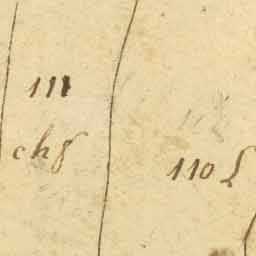 111
chf
110 L